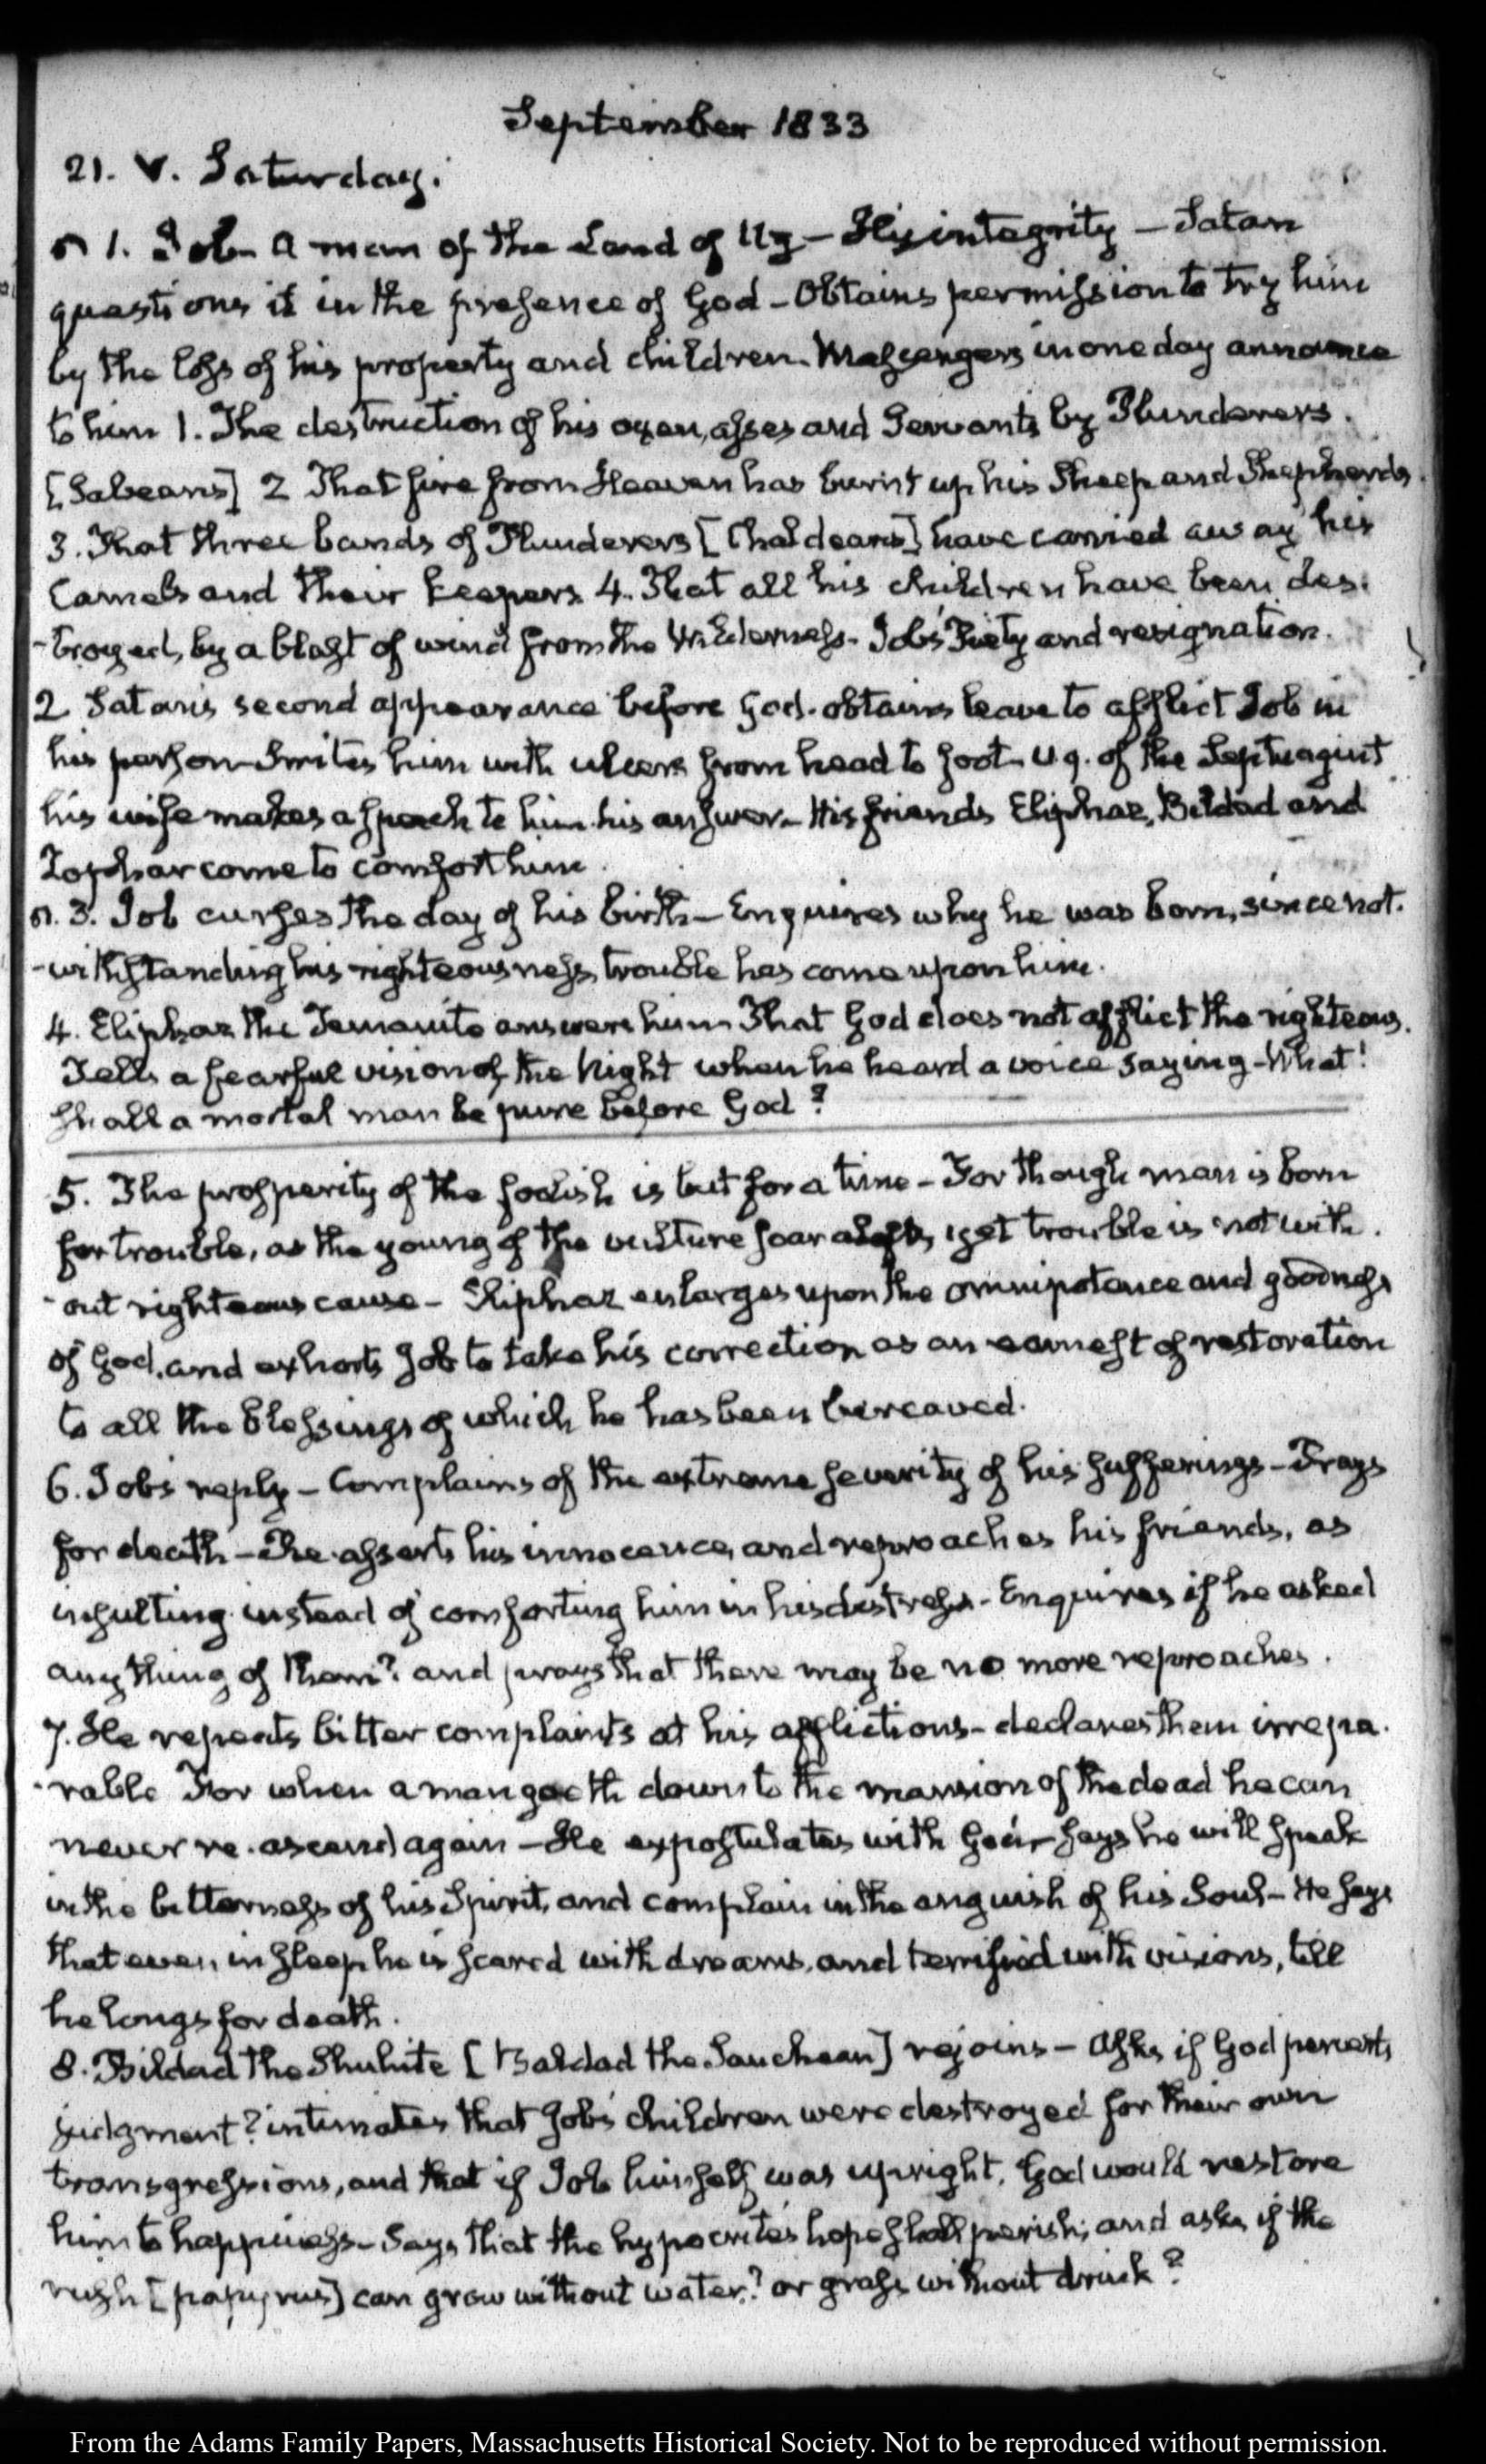 September 1833
21. V. Saturday.
1. Job a man of the Land of Uz – His integrity – Satan
questions it in the presence of God – Obtains permission to try him
by the loss of his property and children. Messengers in one day announce
to him 1. The destruction of his oxen, asses and Servants by Plunderers.
[Sabeans] 2 That fire from Heaven has burnt up his Sheep and Shepherds.
3. That three bands of Plunderers [Chaldeans] have carried away his
Camels and their keepers. 4. That all his children have been des-
-troyed, by a blast of wind from the Wilderness – Job's Piety and resignation.
2 Satan's second appearance before God. obtains leave to afflict Job in
his person – Smites him with ulcers from head to foot – v. 9. of the Septuagint
his wife makes a speech to him. his answer – His friends Eliphaz, Bildad and
Zophar come to comfort him.
n. 3. Job curses the day of his birth – Enquires why he was born, since not-
-withstanding his righteousness, trouble has come upon him.
4. Eliphaz the Temanite answers him. That God does not afflict the righteous.
Tells a fearful vision of the Night when he heard a voice saying – What!
shall a mortal man be pure before God?
5. The prosperity of the foolish is but for a time – For though man is born
for trouble, as the young of the vulture soar aloft, yet trouble is not with-
-out righteous cause – Eliphaz enlarges upon the omnipotence and goodness
of God, and exhorts Job to take his correction as an earnest of restoration
to all the blessings of which he has been bereaved.
6. Job's reply – Complains of the extreme severity of his sufferings – Prays
for death – He asserts his innocence, and reproaches his friends, as
insulting instead of comforting him in his distress – Enquires if he asked
any thing of them? and prays that there may be no more reproaches.
7. He repeats bitter complaints at his afflictions – declares them irrepa-
-rable For when a man goeth down to the mansion of the dead he can
never re-ascend again – He expostulates with God – says he will speak
in the bitterness of his Spirit, and complain in the anguish of his Soul – He says
that even in sleep he is scared with dreams, and terrified with visions, till
he longs for death.
8. Bildad the Shuhite [Baldad the Sauchean] rejoins – Asks if God perverts
judgment? intimates that Job's children were destroyed for their own
transgressions, and that if Job himself was upright, God would restore
him to happiness – Says that the hypocrite's hope shall perish; and asks if the
rush [papyrus] can grow without water? or grass without drink?
From the Adams Family Papers, Massachusetts Historical Society. Not to be reproduced without permission.